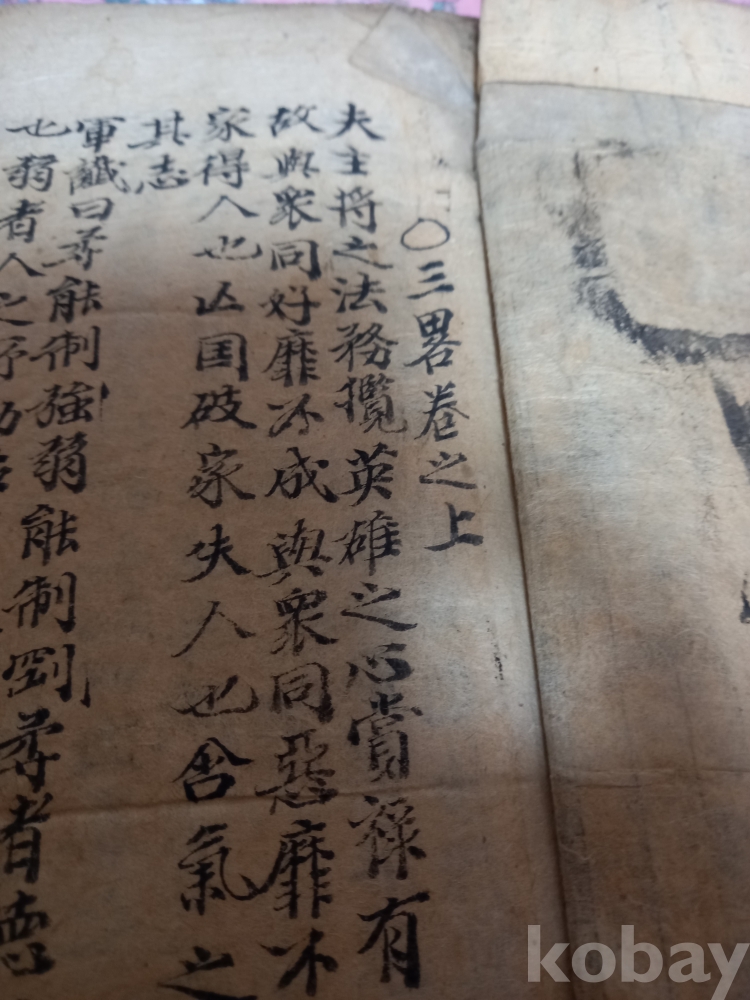 〇三畧卷之上
夫主将之法務攬英雄之心賞祿有
故與衆同好靡不成與衆同惡靡不
家得人也亾国破家失人也含氣之
其志
軍讖曰柔能制強弱能制剛柔者德
也弱者人之所助
kobay